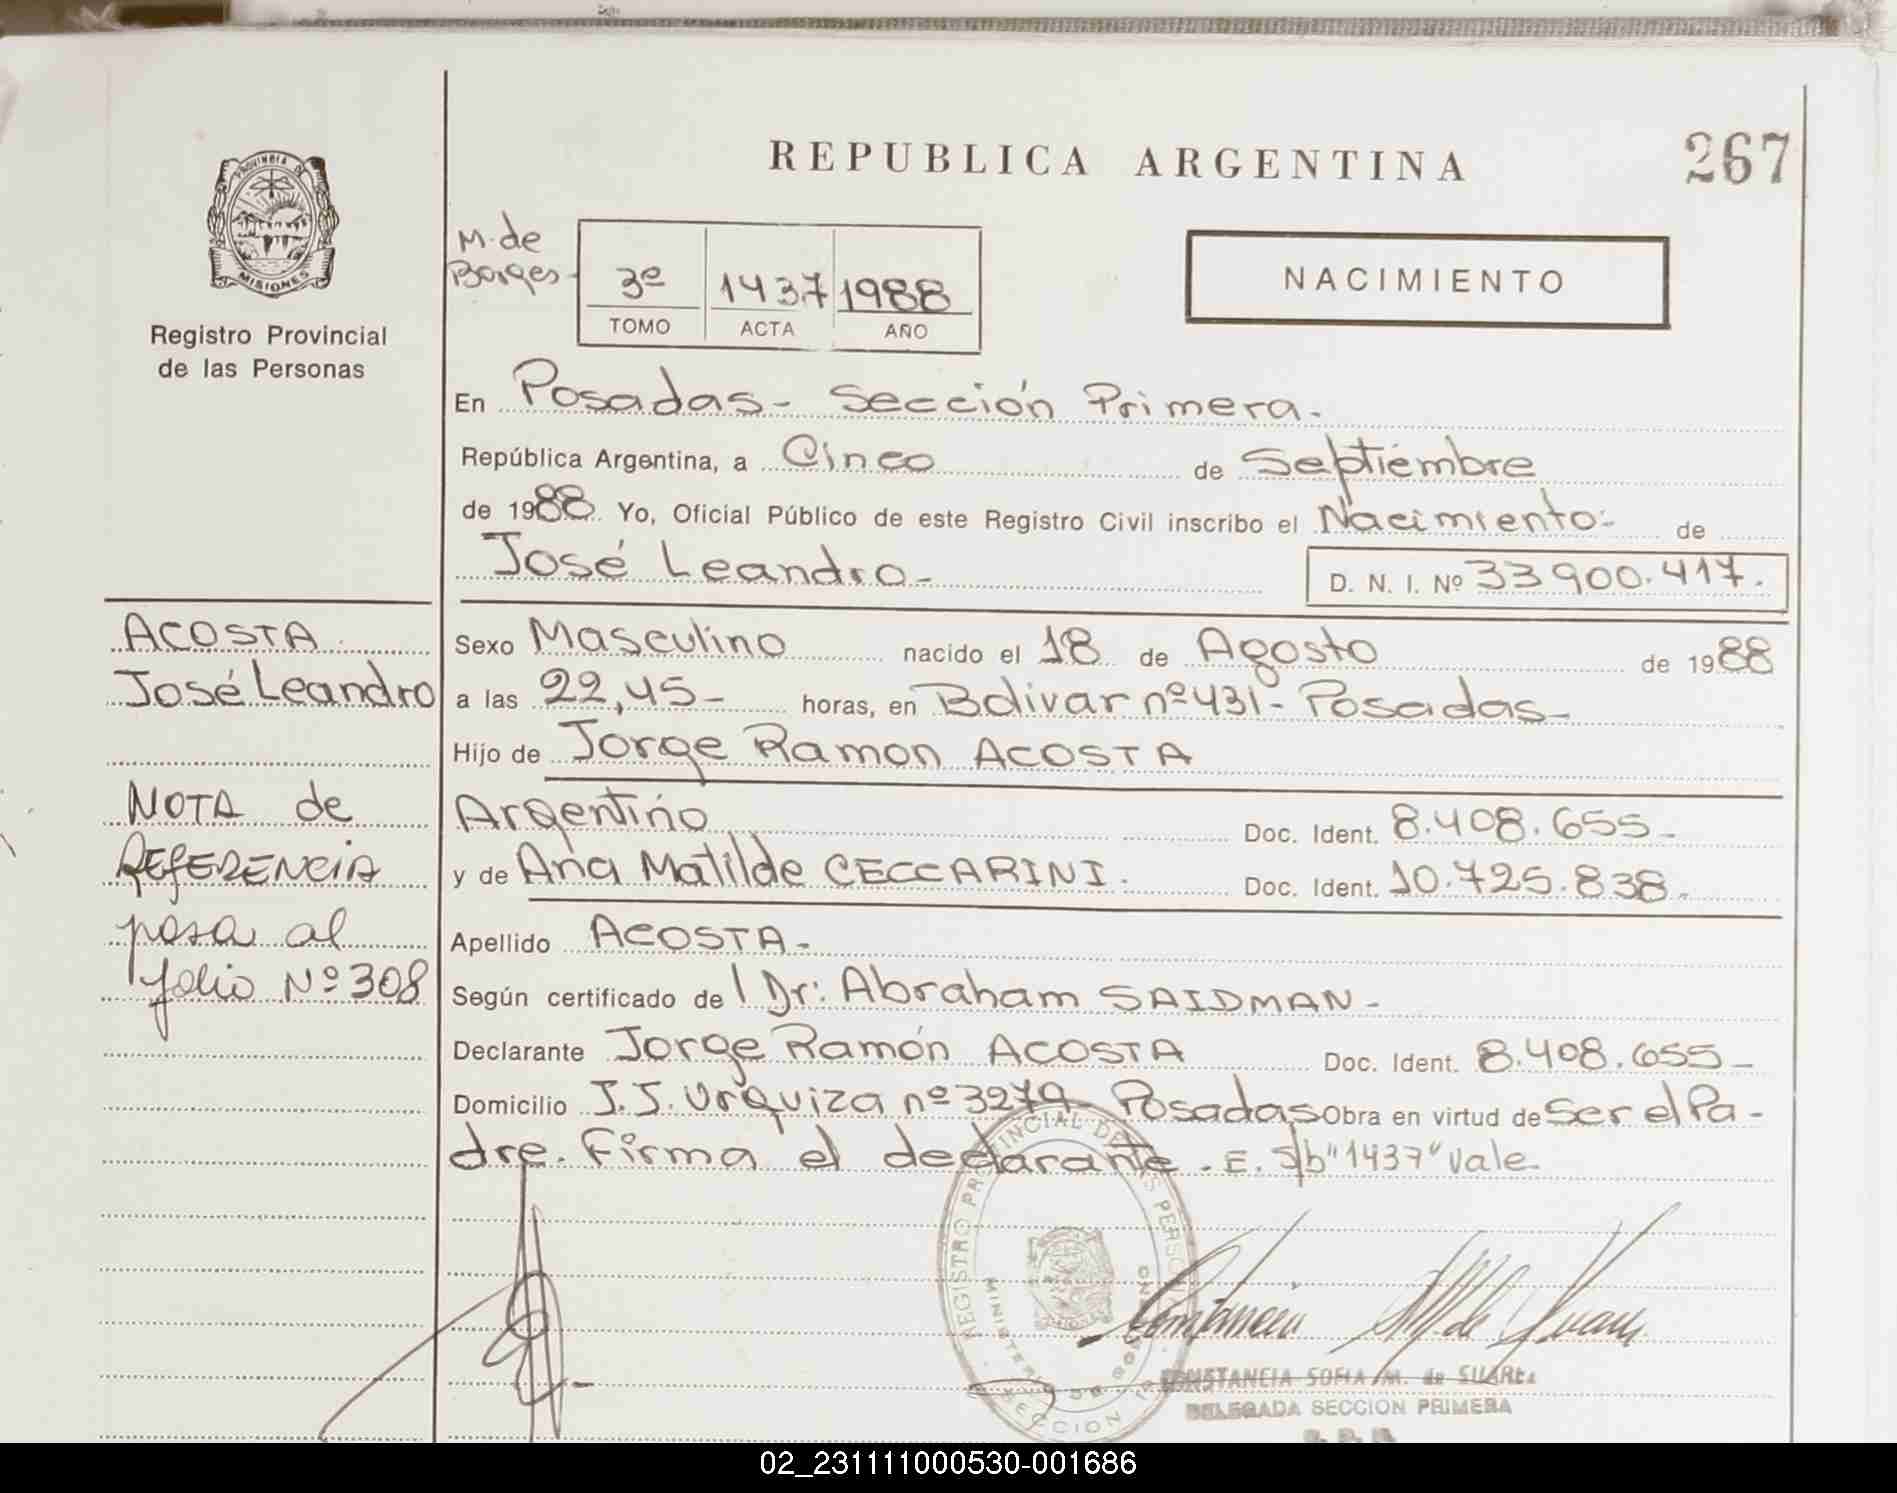 REPUBLICA ARGENTINA
267
PROVINCIA DE
MISIONES
Registro Provincial
de las Personas
M. de
Borges-
3º 1437 1988
TOMO ACTA AÑO
NACIMIENTO
En Posadas- Sección Primera.
República Argentina, a Cinco de Septiembre
de 1988. Yo, Oficial Público de este Registro Civil inscribo el Nacimiento- de
José Leandro- D. N. I. Nº 33900.417.
ACOSTA
José Leandro
NOTA de
REFERENCIA
pasa al
folio Nº 308
Sexo Masculino nacido el 18 de Agosto de 1988
a las 22,45- horas, en Bolivar nº 431- Posadas-
Hijo de Jorge Ramon ACOSTA
Argentino Doc. Ident. 8.408.655-
y de Ana Matilde CECCARINI. Doc. Ident. 10.725.838-
Apellido ACOSTA-
Según certificado de l Dr: Abraham SAIDMAN-
Declarante Jorge Ramón ACOSTA Doc. Ident. 8.408.655-
Domicilio J.J. Urquiza nº 3279- Posadas Obra en virtud de Ser el Pa-
dre. Firma el declarante. E. S/b "1437" Vale.
REGISTRO PROVINCIAL DE LAS PERSONAS
SECCION
CONSTANCIA SOFIA M. de
DELEGADA SECCION PRIMERA
02_231111000530-001686